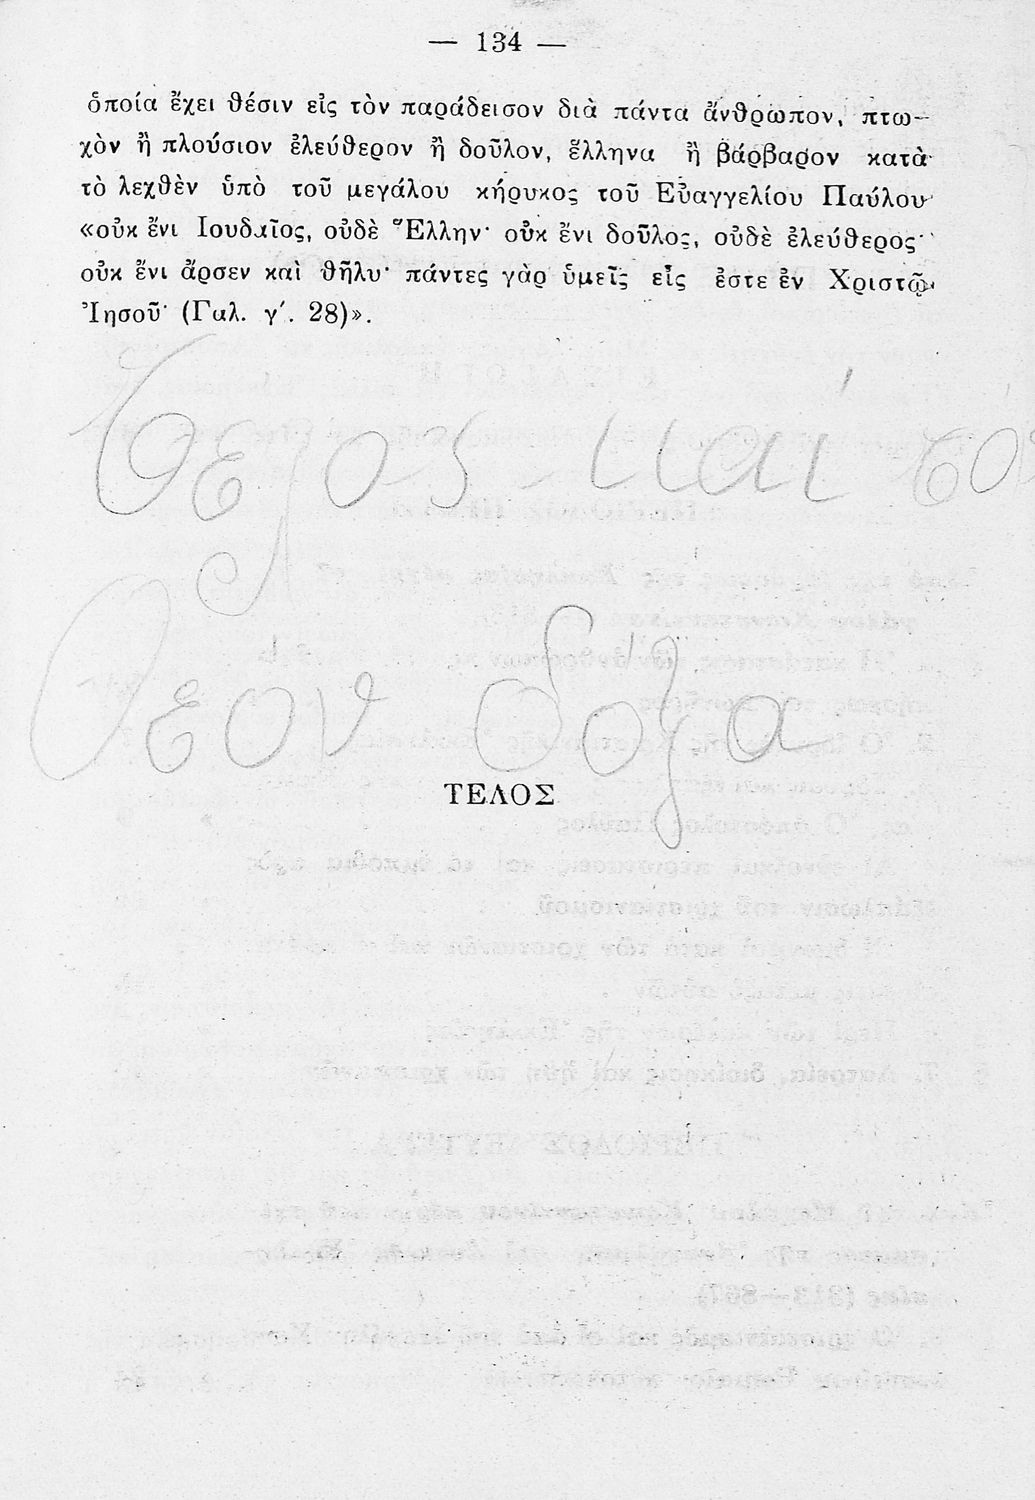 — 134 —
ὁποία ἔχει θέσιν εἰς τὸν παράδεισον διὰ πάντα ἄνθρωπον, πτω-
χὸν ἢ πλούσιον ἐλεύθερον ἢ δοῦλον, ἕλληνα ἢ βάρβαρον κατὰ
τὸ λεχθὲν ὑπὸ τοῦ μεγάλου κήρυκος τοῦ Εὐαγγελίου Παύλου
«οὐκ ἔνι Ιουδαῖος, οὐδὲ Ἕλλην· οὐκ ἔνι δοῦλος, οὐδὲ ἐλεύθερος·
οὐκ ἔνι ἄρσεν καὶ θῆλυ· πάντες γὰρ ὑμεῖς εἷς ἐστε ἐν Χριστῷ
Ἰησοῦ· (Γαλ. γ΄. 28)».
τέλος και το
Θεον δοξα
ΤΕΛΟΣ